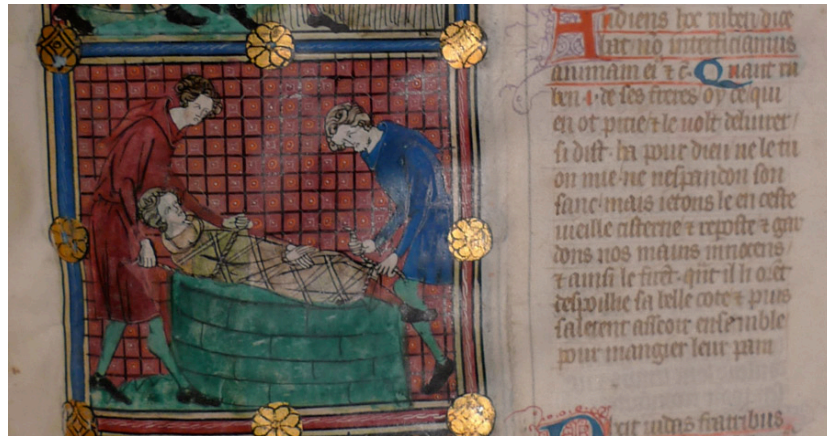 Audiens hoc ruben dice
bat no interficiamus
animam ei ⁊ c̃. Quant ru
ben .i. de ses freres oy ce qui
en ot pitie ⁊ le volt delivrer /
si dist. ha pour dieu ne le tu
on mie / ne nespandon son
sanc / mais ietons le en ceste
vieille cisterne ⁊ reposte ⁊ gar
dons nos mains innocens /
⁊ ainsi le firēt. qñt il li orēt
despoillie sa belle cote ⁊ puis
salerent asseoir ensemble
pour mangier leur pain
Dixit iudas fratribus